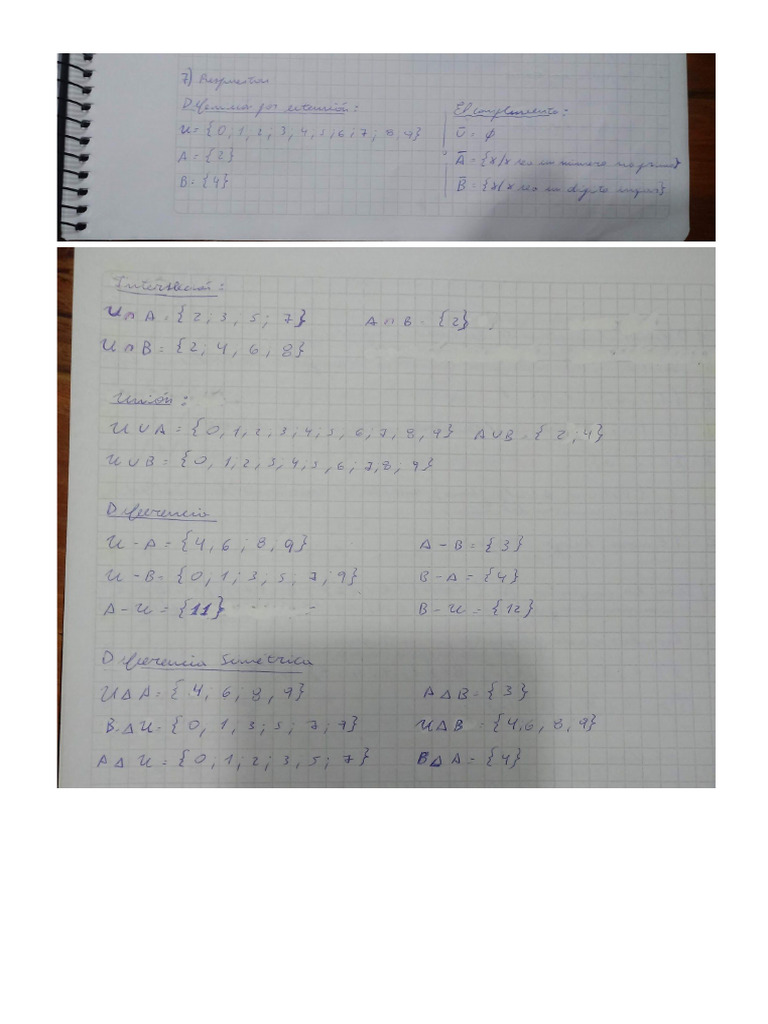 7) Respuestas
Diferencia por extensión:
U = {0, 1, 2; 3, 4, 5, 6, 7; 8, 9}
A = {2}
B = {4}
El complemento:
Ū = ϕ
Ā = {x/x sea un número no primo}
B̄ = {x/x sea un dígito impar}
Intersección:
U ∩ A = {2; 3, 5; 7}
A ∩ B = {2}
U ∩ B = {2; 4, 6, 8}
Unión:
U ∪ A = {0, 1, 2, 3, 4, 5, 6, 7, 8, 9}
A ∪ B = {2; 4}
U ∪ B = {0, 1, 2, 3, 4, 5, 6, 7, 8, 9}
Diferencia
U - A = {4, 6; 8, 9}
A - B = {3}
U - B = {0, 1; 3, 5, 7, 9}
B - A = {4}
A - U = {11}
B - U = {12}
Diferencia Simétrica
U Δ A = {4; 6; 8, 9}
A Δ B = {3}
B Δ U = {0, 1, 3; 5; 7; 9}
U Δ B = {4, 6, 8, 9}
A Δ U = {0; 1; 2; 3, 5; 7}
B Δ A = {4}